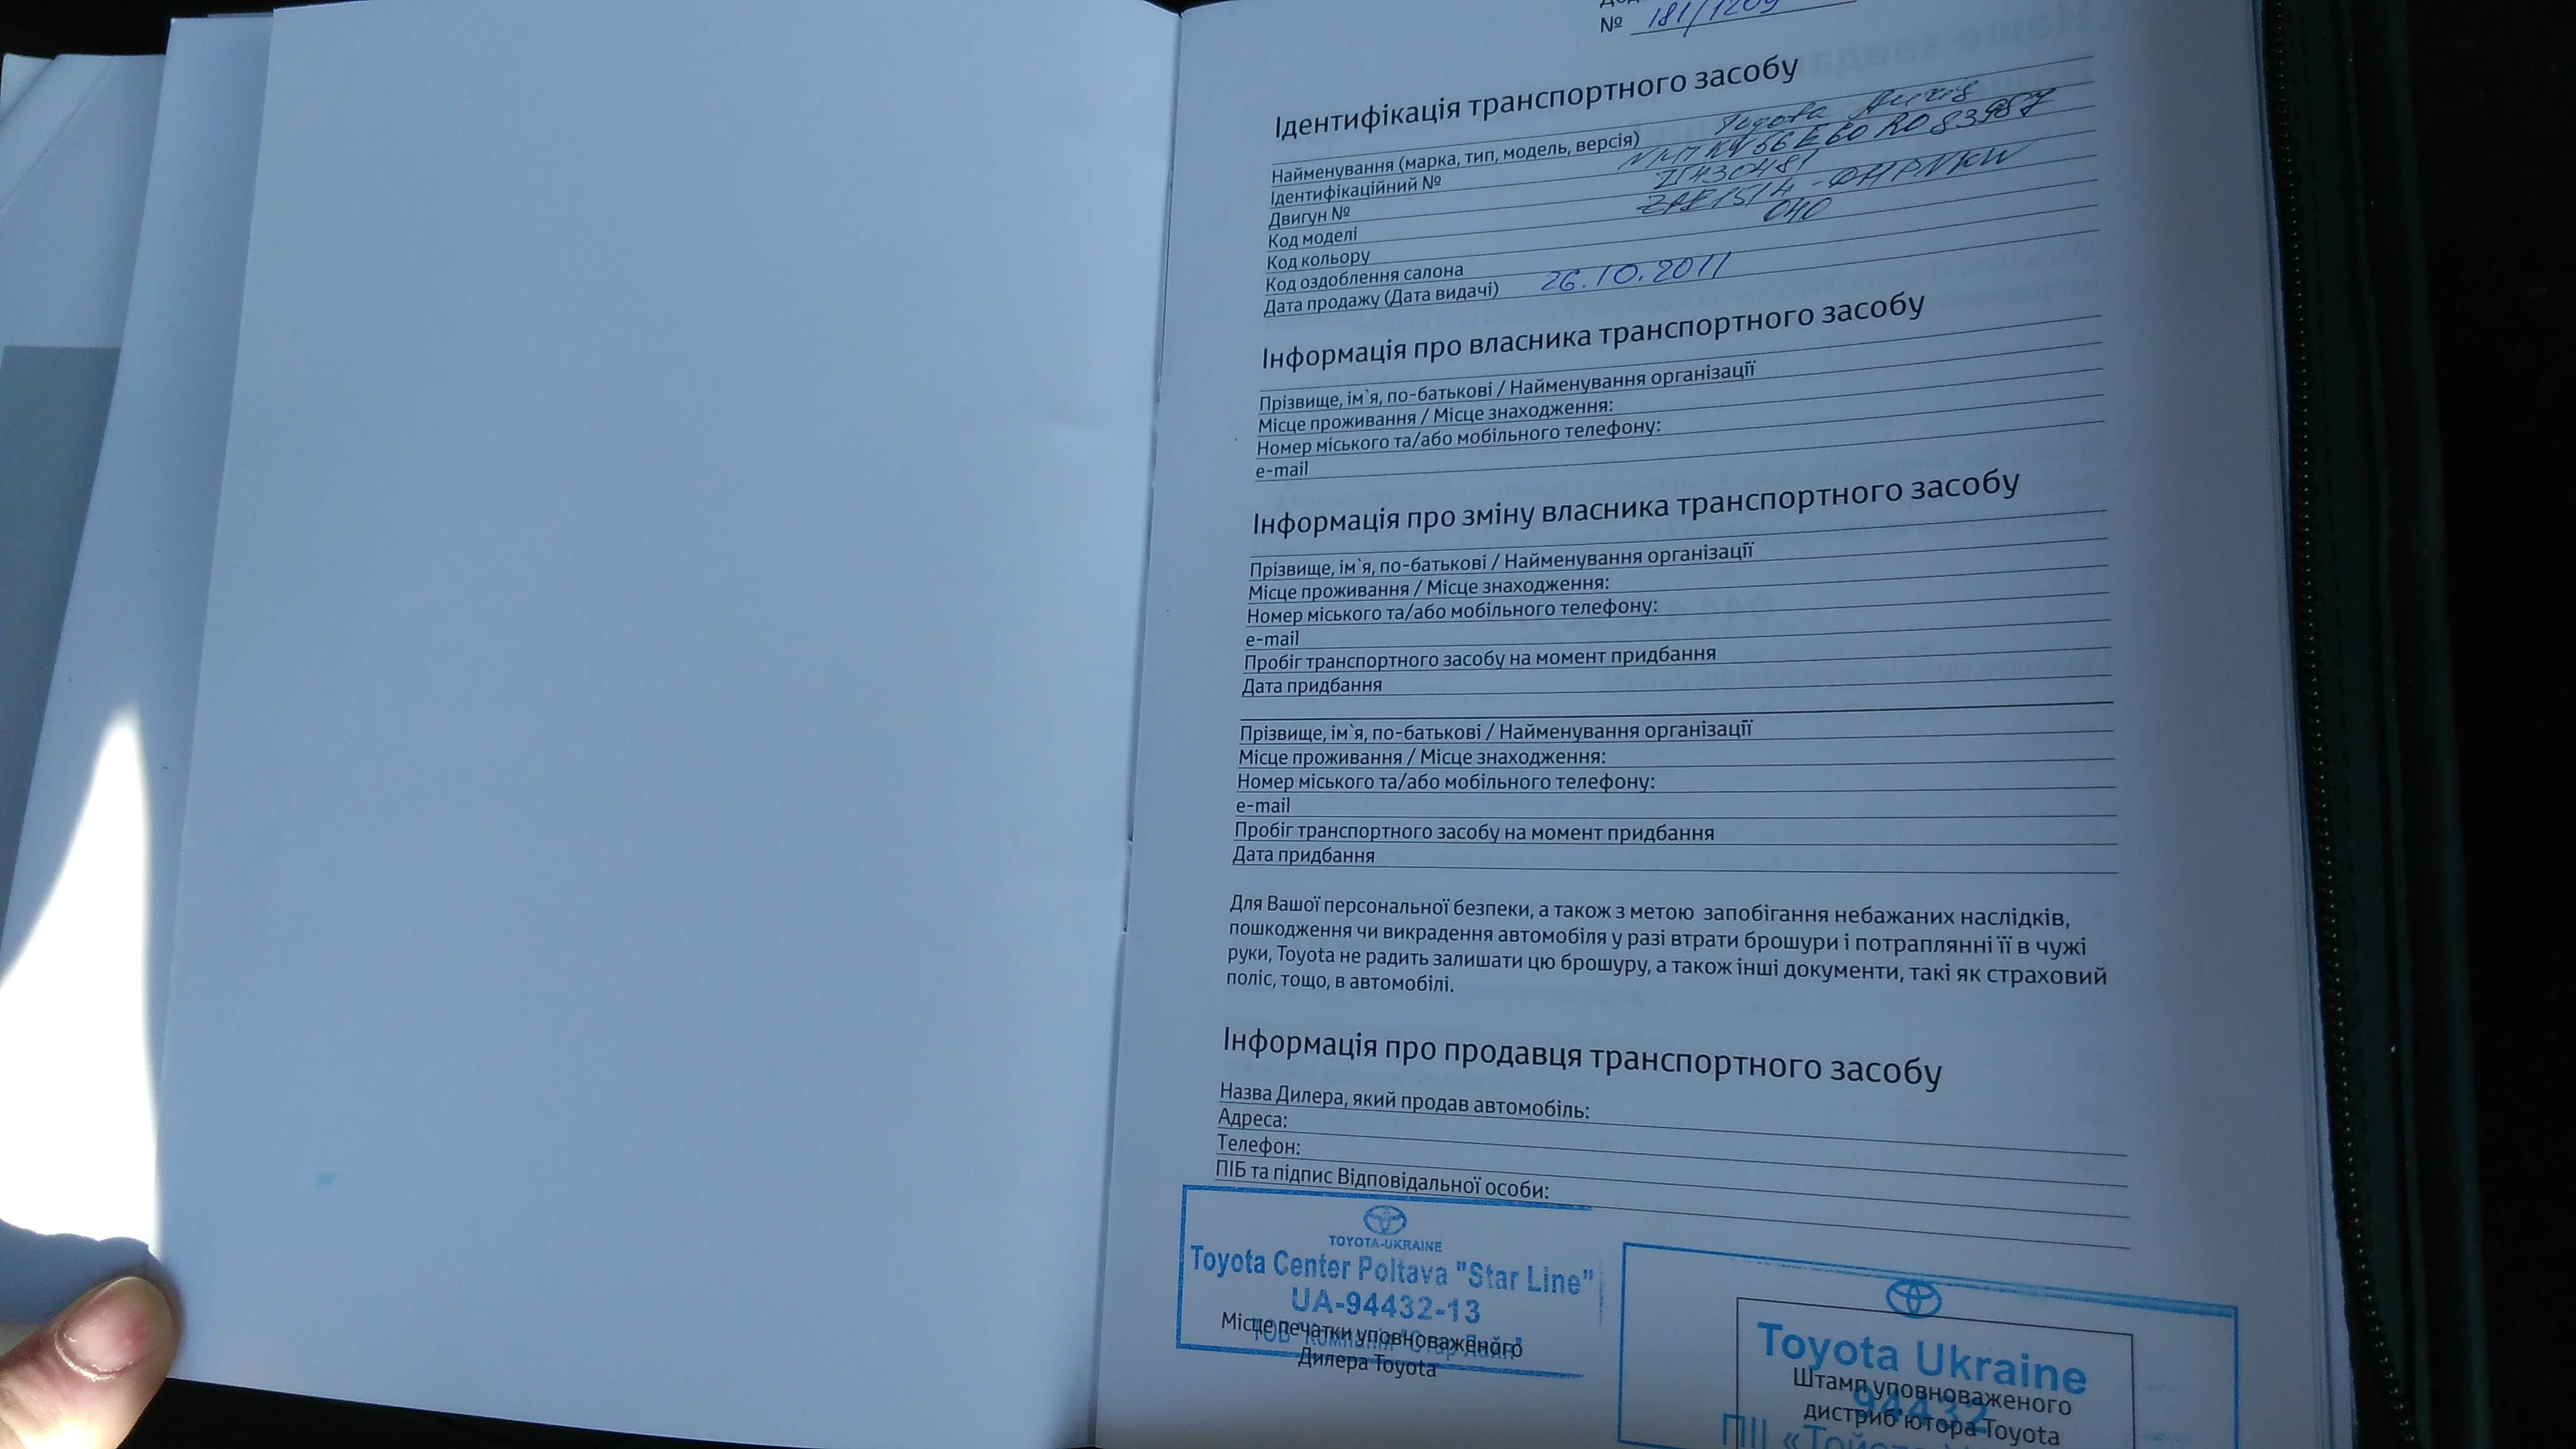 № 181/1209
Ідентифікація транспортного засобу
Найменування (марка, тип, модель, версія) Toyota Auris
Ідентифікаційний №
Двигун №
Код моделі
Код кольору 040
Код оздоблення салона
Дата продажу (Дата видачі) 26.10.2011
Інформація про власника транспортного засобу
Прізвище, ім`я, по-батькові / Найменування організації
Місце проживання / Місце знаходження:
Номер міського та/або мобільного телефону:
e-mail
Інформація про зміну власника транспортного засобу
Прізвище, ім`я, по-батькові / Найменування організації
Місце проживання / Місце знаходження:
Номер міського та/або мобільного телефону:
e-mail
Пробіг транспортного засобу на момент придбання
Дата придбання
Прізвище, ім`я, по-батькові / Найменування організації
Місце проживання / Місце знаходження:
Номер міського та/або мобільного телефону:
e-mail
Пробіг транспортного засобу на момент придбання
Дата придбання
Для Вашої персональної безпеки, а також з метою запобігання небажаних наслідків,
пошкодження чи викрадення автомобіля у разі втрати брошури і потраплянні її в чужі
руки, Toyota не радить залишати цю брошуру, а також інші документи, такі як страховий
поліс, тощо, в автомобілі.
Інформація про продавця транспортного засобу
Назва Дилера, який продав автомобіль:
Адреса:
Телефон:
ПІБ та підпис Відповідальної особи:
TOYOTA-UKRAINE
Toyota Center Poltava "Star Line"
UA-94432-13
ТОВ "Компанія "Стар Лайн"
Місце печатки уповноваженого
Дилера Toyota
Toyota Ukraine
94432
ПІІ
Штамп уповноваженого
дистриб'ютора Toyota